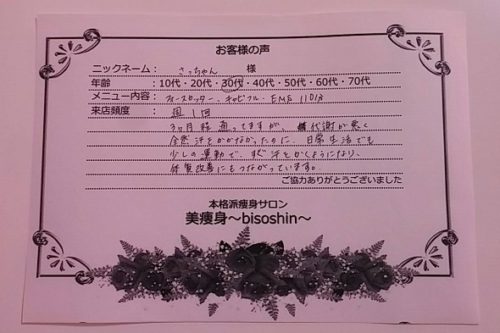 お客様の声
ニックネーム： さっちゃん 様
年齢 ：10代・20代・30代・40代・50代・60代・70代
メニュー内容：キャビフル・EMS
来店頻度 ： 週1回
3ヶ月程通ってますが、代謝が悪く
全然汗をかかなかったのに、日常生活でも
少しの運動で、すぐ汗をかくようになり、
体質改善にもつながっています。
ご協力ありがとうございました
本格派痩身サロン
美痩身～bisoshin～